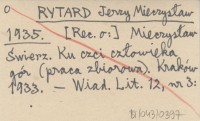 RYTARD Jerzy Mieczysław
1935. [Rec. o:] Mieczysław
Świerz. Ku czci człowieka
gór (praca zbiorowa). Kraków
1933. – Wiad. Lit. 12, nr 3: